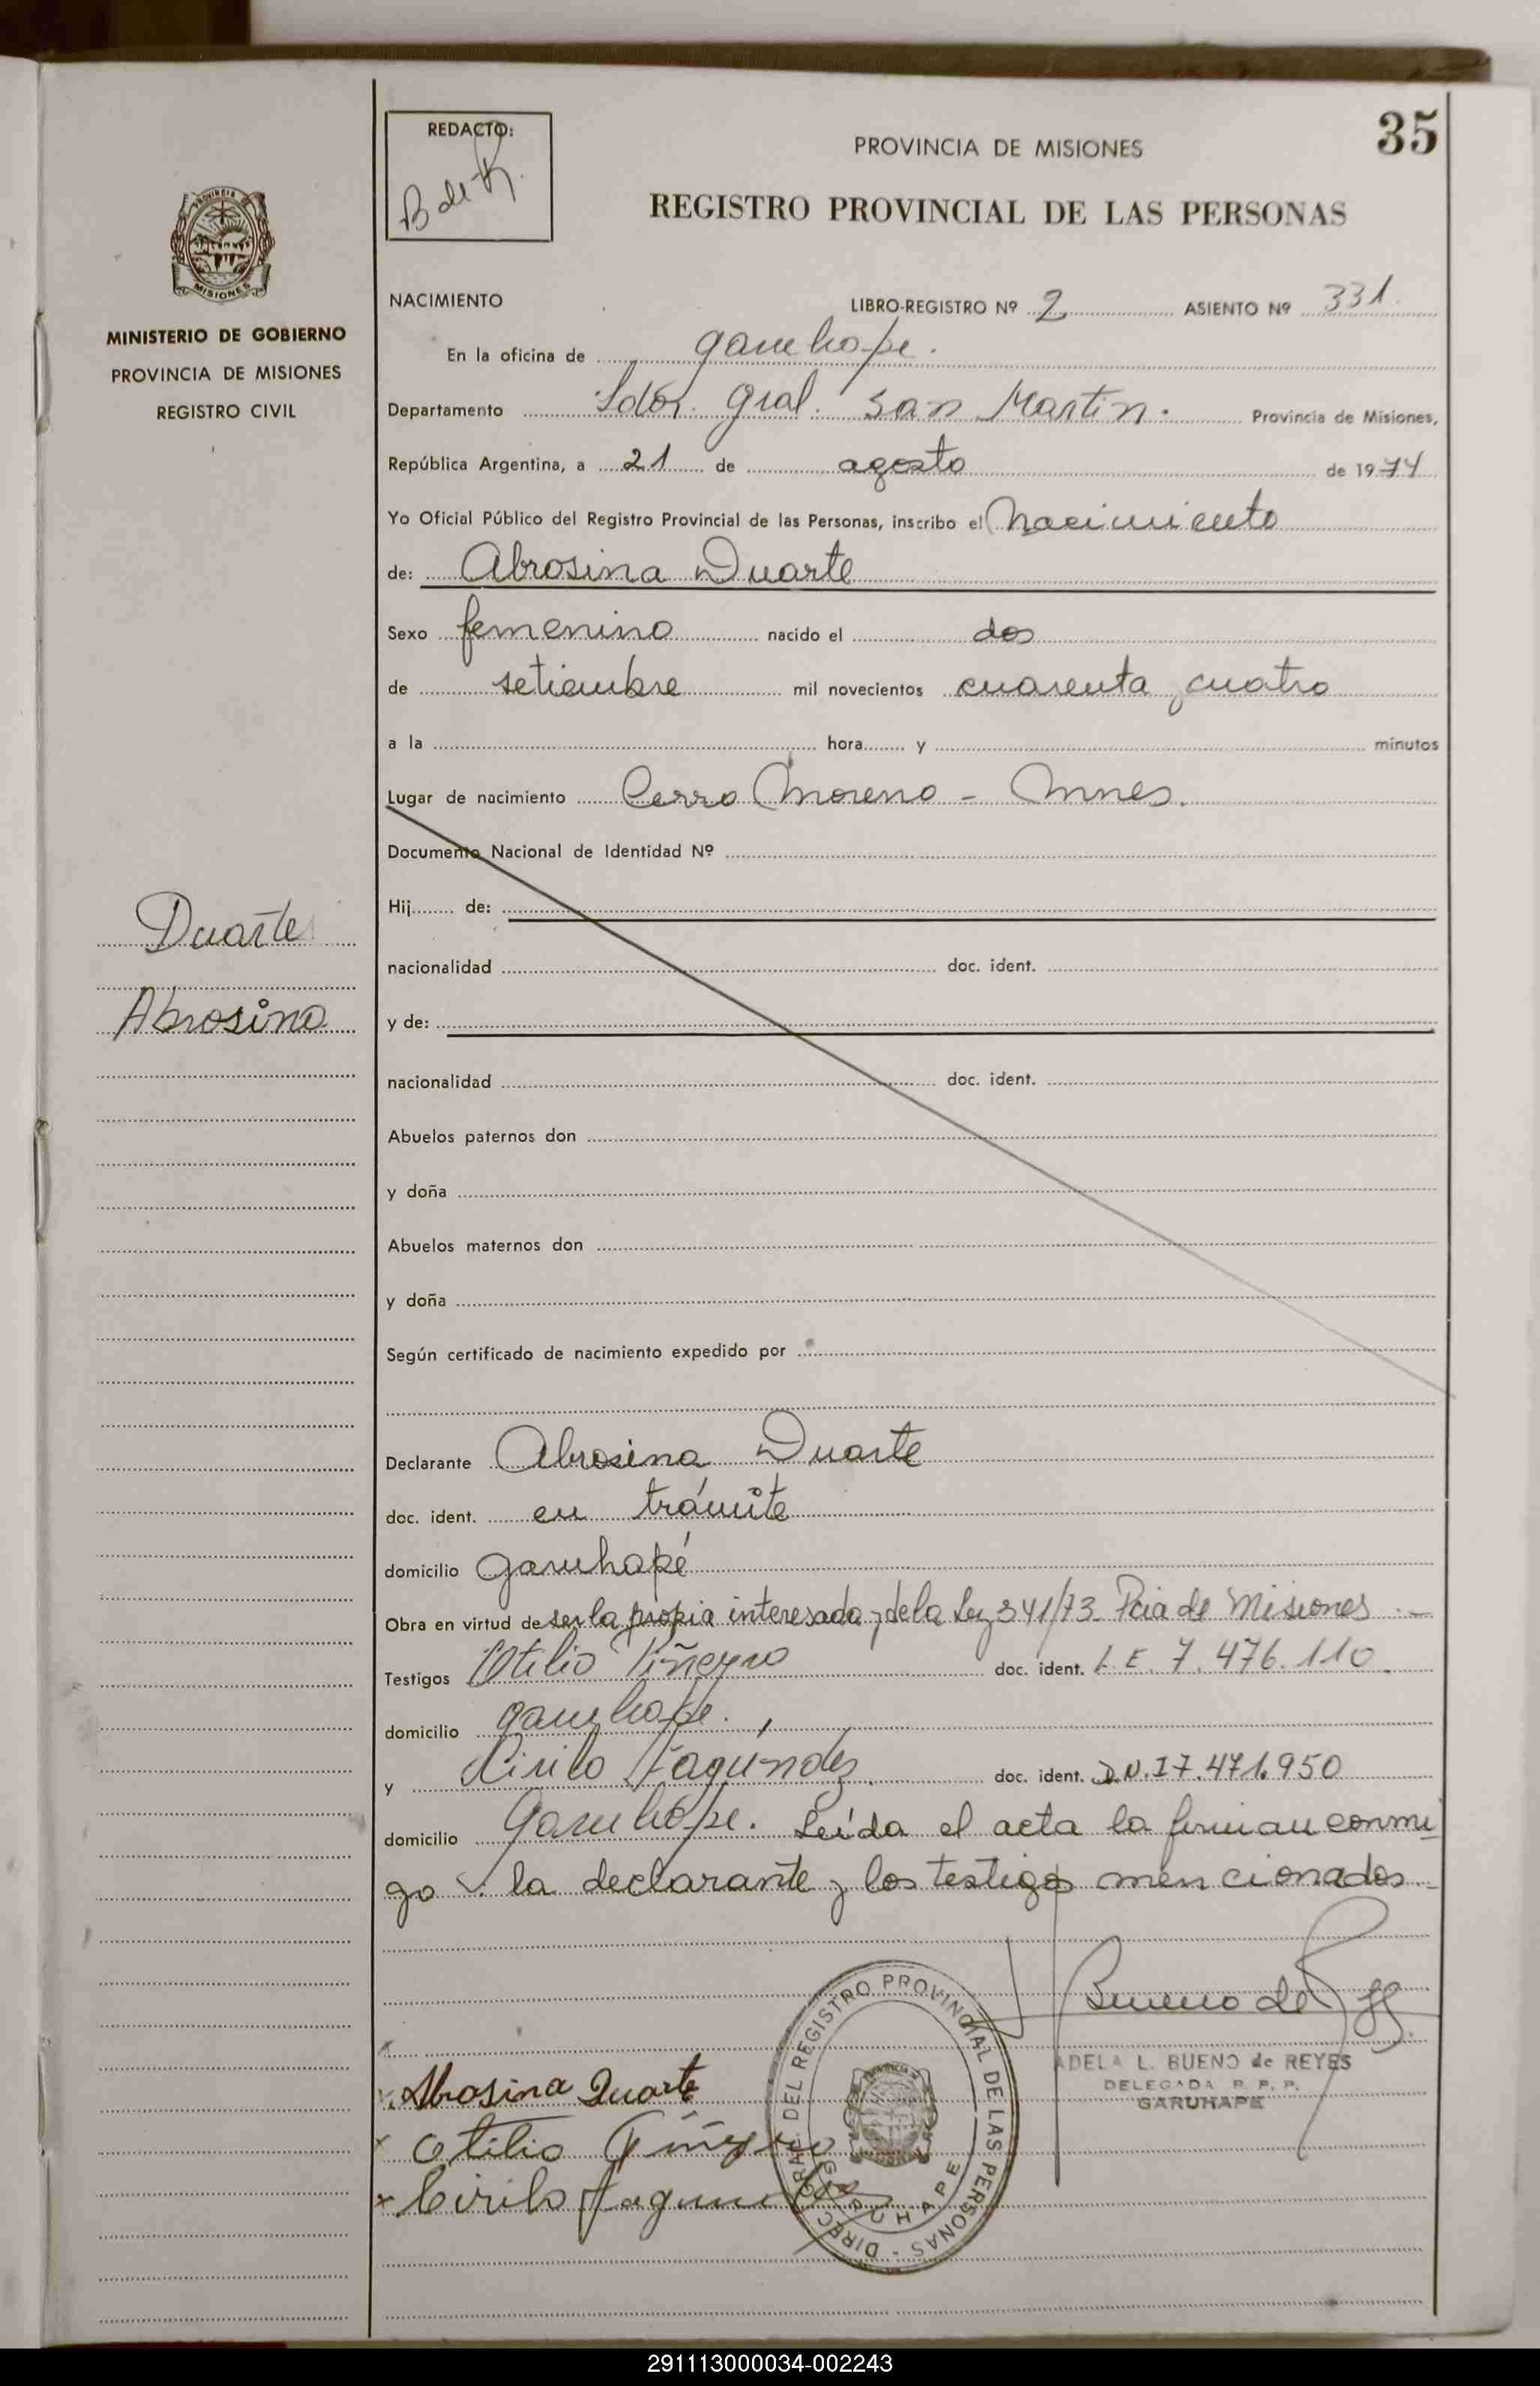 35
REDACTO:
B de R.
PROVINCIA DE MISIONES
REGISTRO PROVINCIAL DE LAS PERSONAS
PROVINCIA
MISIONES
MINISTERIO DE GOBIERNO
PROVINCIA DE MISIONES
REGISTRO CIVIL
Duarte
Abrosina
NACIMIENTO LIBRO-REGISTRO Nº 2 ASIENTO Nº 331.
En la oficina de Garuhape.
Departamento Ldor. Gral. San Martin. Provincia de Misiones,
República Argentina, a 21 de agosto de 1974
Yo Oficial Público del Registro Provincial de las Personas, inscribo el Nacimiento
de: Abrosina Duarte
Sexo femenino nacido el dos
de setiembre mil novecientos cuarenta y cuatro
a la hora y minutos
Lugar de nacimiento Cerro Moreno - Mnes.
Documento Nacional de Identidad Nº
Hij de:
nacionalidad doc. ident.
y de:
nacionalidad doc. ident.
Abuelos paternos don
y doña
Abuelos maternos don
y doña
Según certificado de nacimiento expedido por
Declarante Abrosina Duarte
doc. ident. en trámite
domicilio Garuhapé
Obra en virtud de ser la propia interesada y de la Ley 341/73 - Pcia de Misiones.-
Testigos Otilio Piñeyro doc. ident. L.E. 7.476.110.
domicilio Garuhape.
y Cirilo Fagúndez. doc. ident. D.N.I 7.471.950
domicilio Garuhape. Leída el acta la firman conmi
go la declarante y los testigos mencionados.-
Bueno de R
ADELA L. BUENO de REYES
DELEGADA R. P. P.
GARUHAPE
x. Abrosina Duarte
x Otilio Piñeyro
x Cirilo Fagundez
DIREC. GRAL. DEL REGISTRO PROVINCIAL DE LAS PERSONAS -
GARUHAPE
291113000034-002243